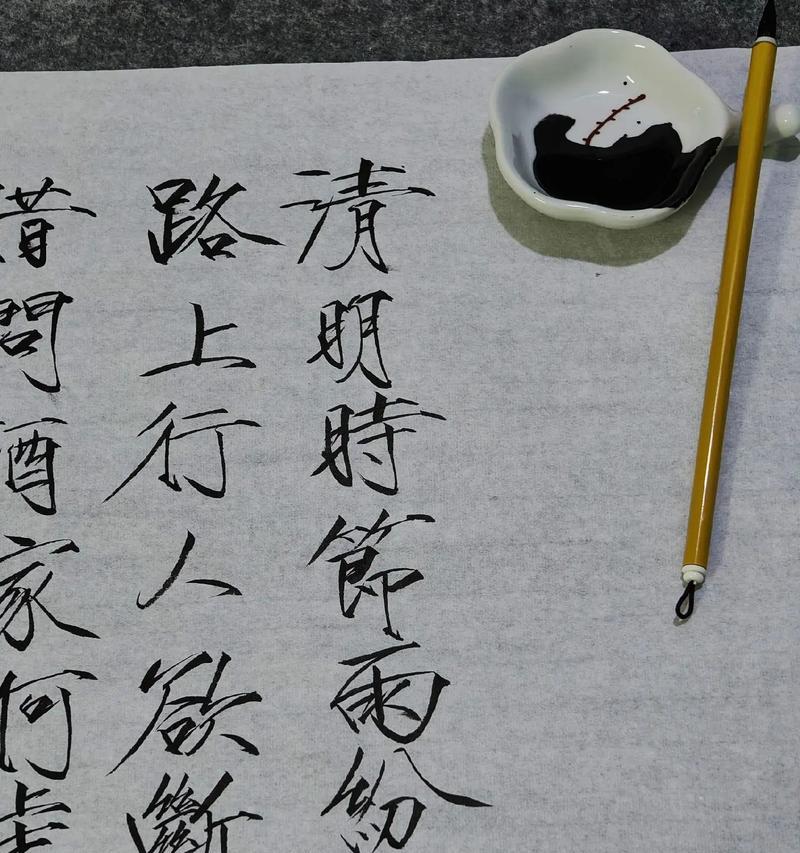 清明時節雨紛
路上行人欲斷
借問酒家何處